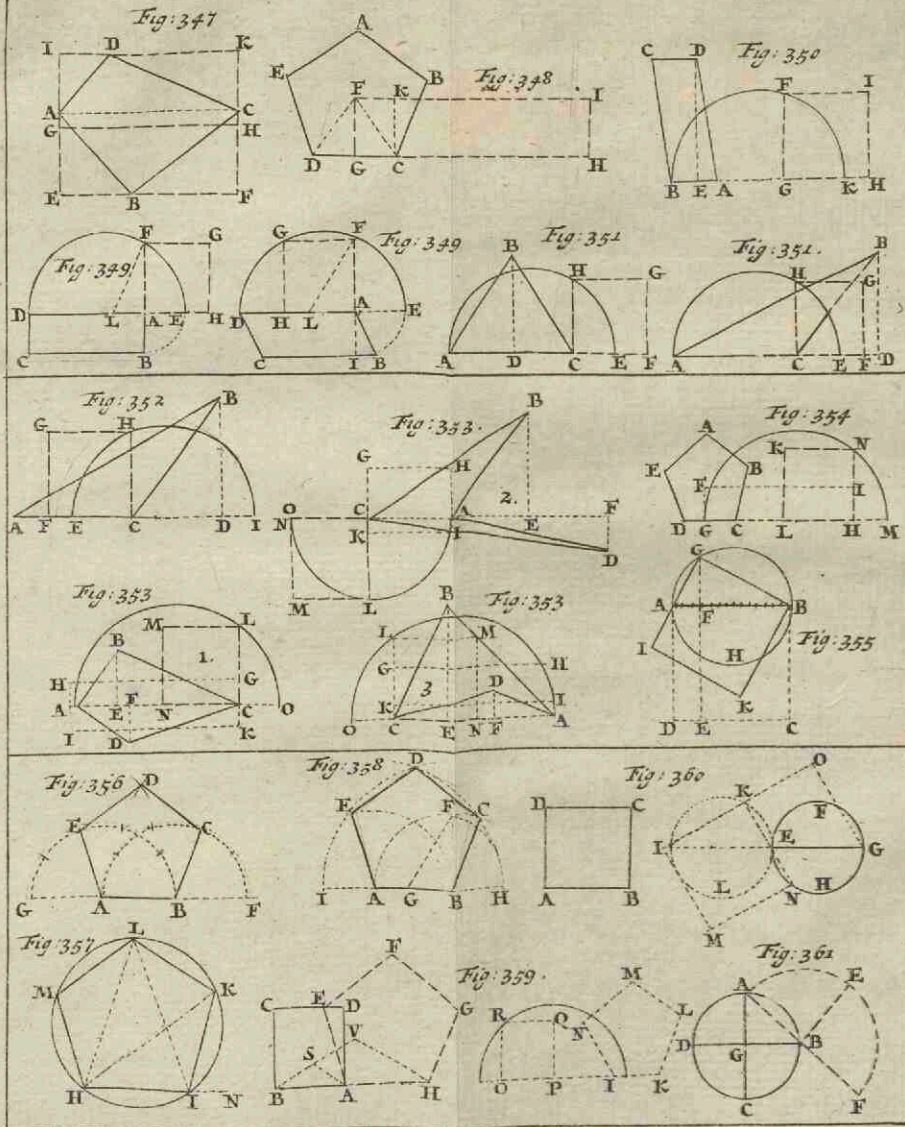 Fig: 347
I D K
A C
G H
E B F
A
E B
F K Fig: 348 I
D G C H
C D Fig: 350
F I
B E A G K H
F G
Fig: 349
D L A E H
C B
G F Fig: 349
D H L A E
C I B
B Fig: 351
H G
A D C E F
Fig: 351. B
H G
A C E F D
Fig: 352 B
G H
A F E C D I
Fig: 353. B
G H
O N C A 2. E F
K I D
M L
Fig: 354
A
E B K N
F I
D G C L H M
Fig: 353
M L
B 1.
H G
A E F N C O
I D K
B Fig: 353
L M
G H
3 D
K I
O C E N F A
G
A F B
Fig: 355
I H
K
D E C
Fig: 356 D
E C
G A B F
Fig: 358 D
E F C
I A G B H
Fig: 360
D C
A B
K O
F
I E G
L N H
M
Fig: 357 L
M K
H I N
F
C E D G
V
S
B A H
Fig: 359.
M
R Q N L
O P I K
Fig: 361
A E
D G B
C F